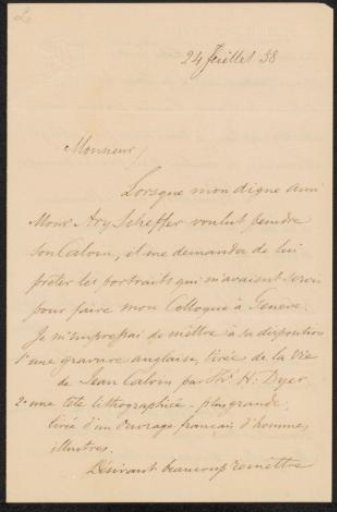 24 Juillet 58
Monsieur,
Lorsque mon digne ami
Monsr Ary Scheffer voulut peindre
son Calvin, il me demanda de lui
prêter les portraits qui m'avaient servi
pour faire mon Colloque à Genève.
Je m'empressai de mettre à sa disposition
1° une gravure anglaise, tirée de la vie
de Jean Calvin par Th. H. Dyer
2° une tête lithographiée plus grande,
tirée d'un ouvrage français d'hommes
illustres.
Désirant beaucoup remettre